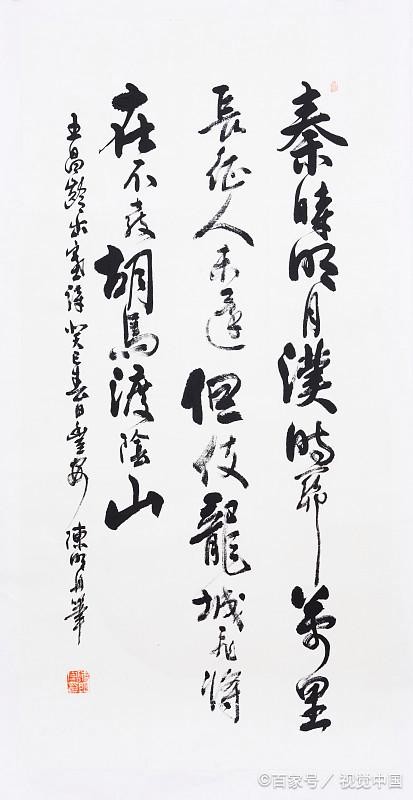 秦時明月漢時關萬里
長征人未還但使龍城飛將
在不教胡馬渡陰山
王昌齡出塞詩癸巳春日 陳明筆
©百家号／视觉中国